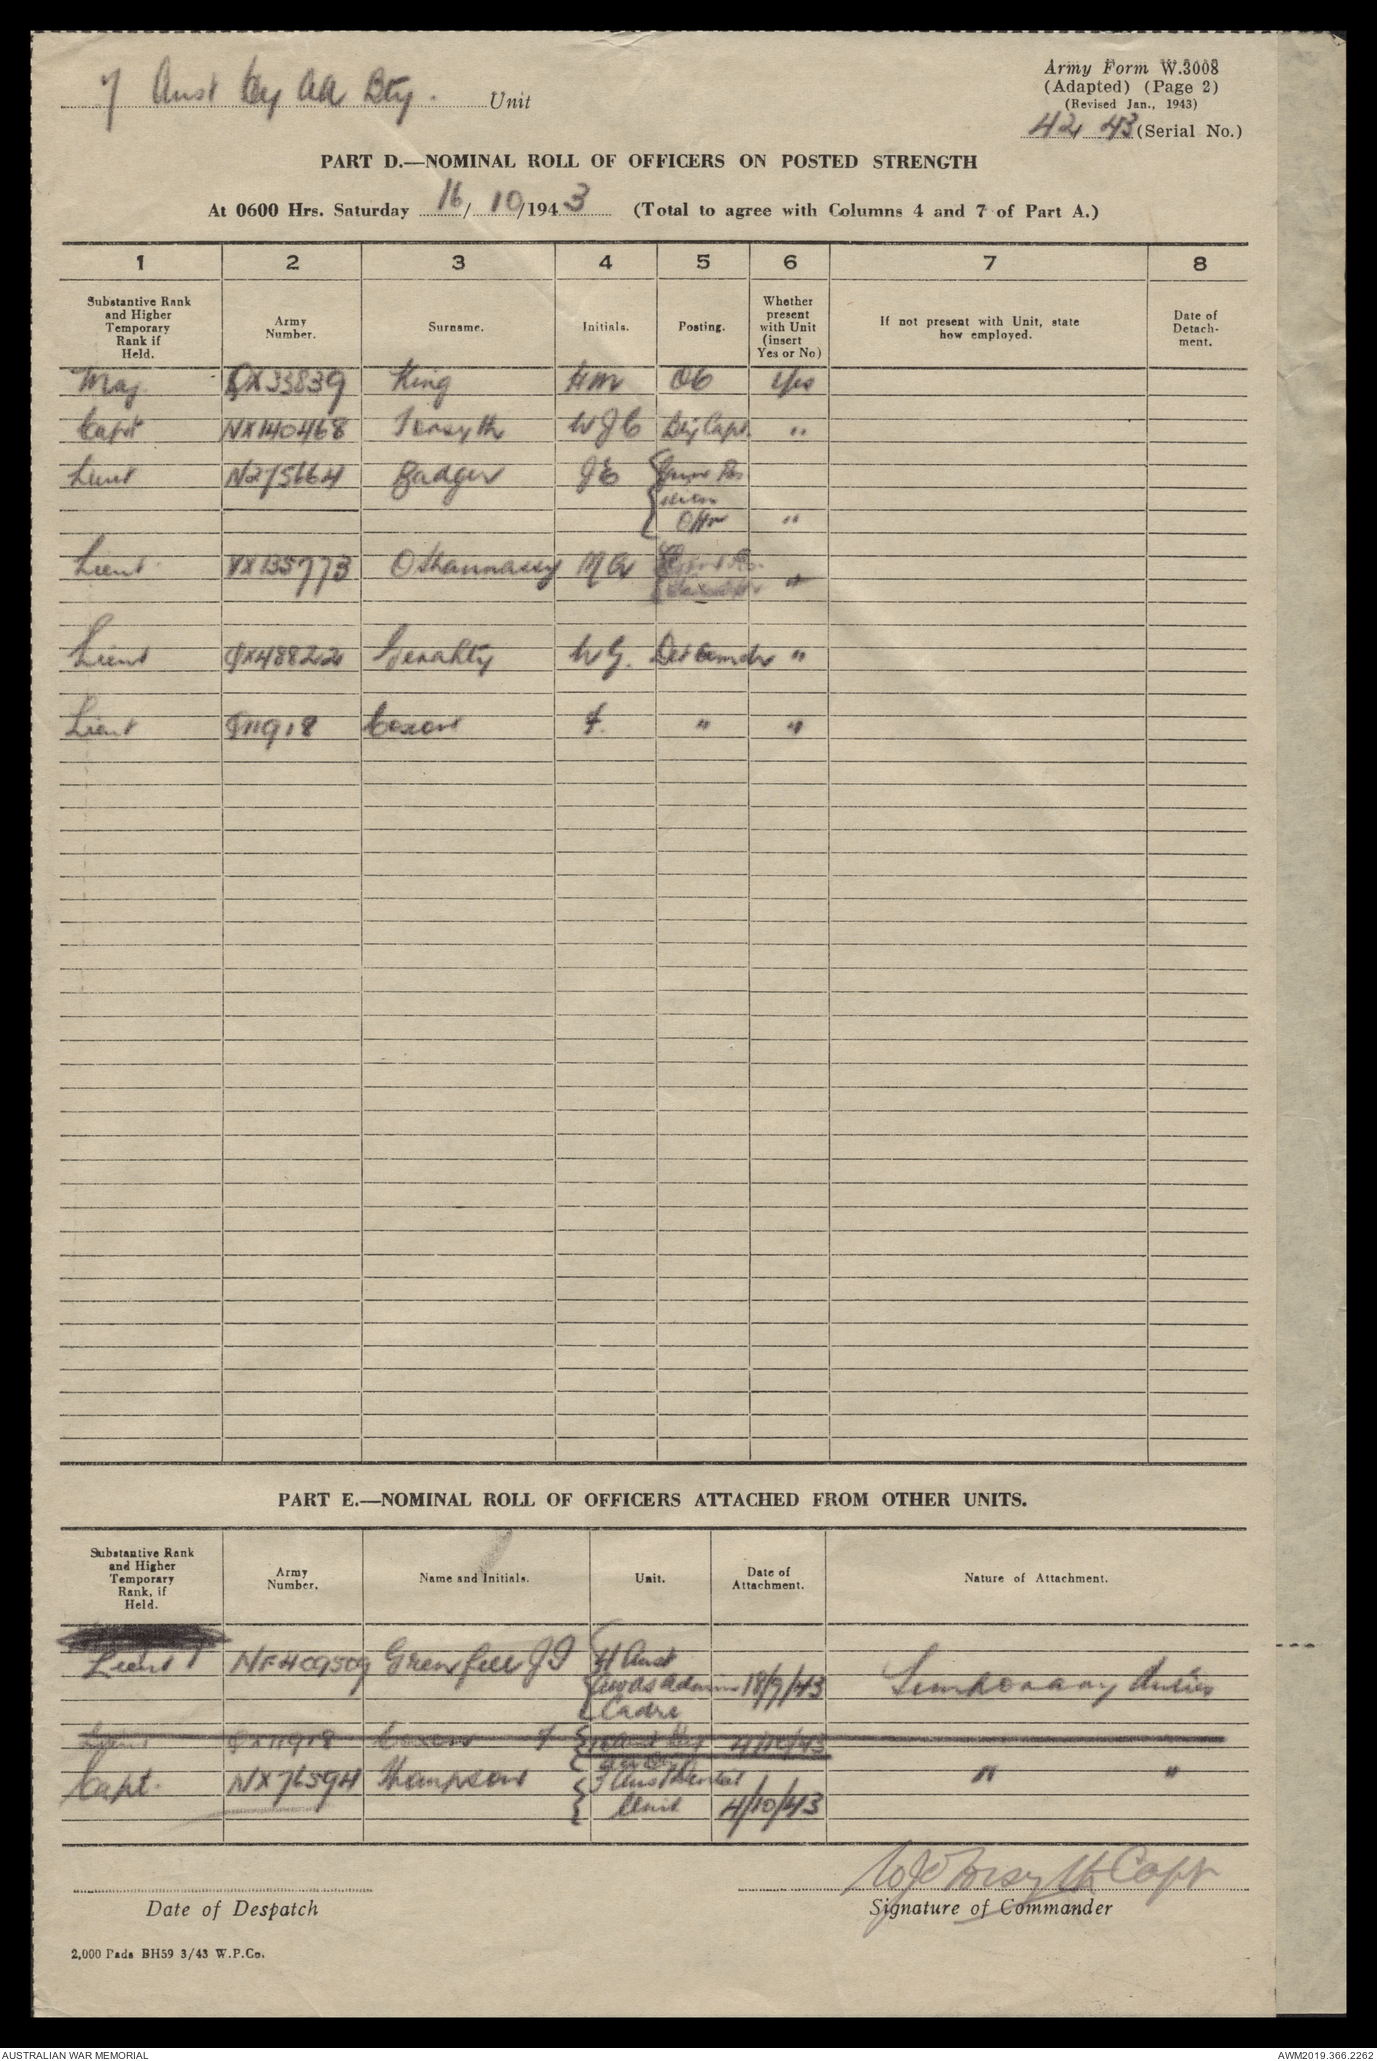 7 Aust Hy AA Bty. Unit
Army Form W.3008
(Adapted) (Page 2)
(Revised Jan., 1943)
42 43 (Serial No.)
PART D.—NOMINAL ROLL OF OFFICERS ON POSTED STRENGTH
At 0600 Hrs. Saturday 16/10/1943 (Total to agree with Columns 4 and 7 of Part A.)
1 2 3 4 5 6 7 8
Substantive Rank and Higher Temporary Rank if Held. Army Number. Surname. Initials. Posting. Whether present with Unit (insert Yes or No) If not present with Unit, state how employed. Date of Detach-ment.
Maj. QX33839 King HM OC Yes
Capt NX140468 Forsyth WJC Bty Capt. "
Lieut N275664 Badger JE
Offr "
Lieut. VX135773 OShannassy "
Lieut QX48822 Gerahty WG. Det Comdr "
Lieut Coxon F. " "
PART E.—NOMINAL ROLL OF OFFICERS ATTACHED FROM OTHER UNITS.
Substantive Rank and Higher Temporary Rank, if Held. Army Number. Name and Initials. Unit. Date of Attachment. Nature of Attachment.
Lieut NF409509 Grenfell JI Aust
AWAS Admin 18/9/43 Temporary duties
Cadre
Lieut QX11918 Coxon F 4/10/43
Capt. NX76594 Thompson 3 Aust Dental " "
Unit 4/10/43
WJC Forsyth Capt
Date of Despatch
Signature of Commander
2,000 Pads BH59 3/43 W.P.Co.
AUSTRALIAN WAR MEMORIAL
AWM2019.366.2262